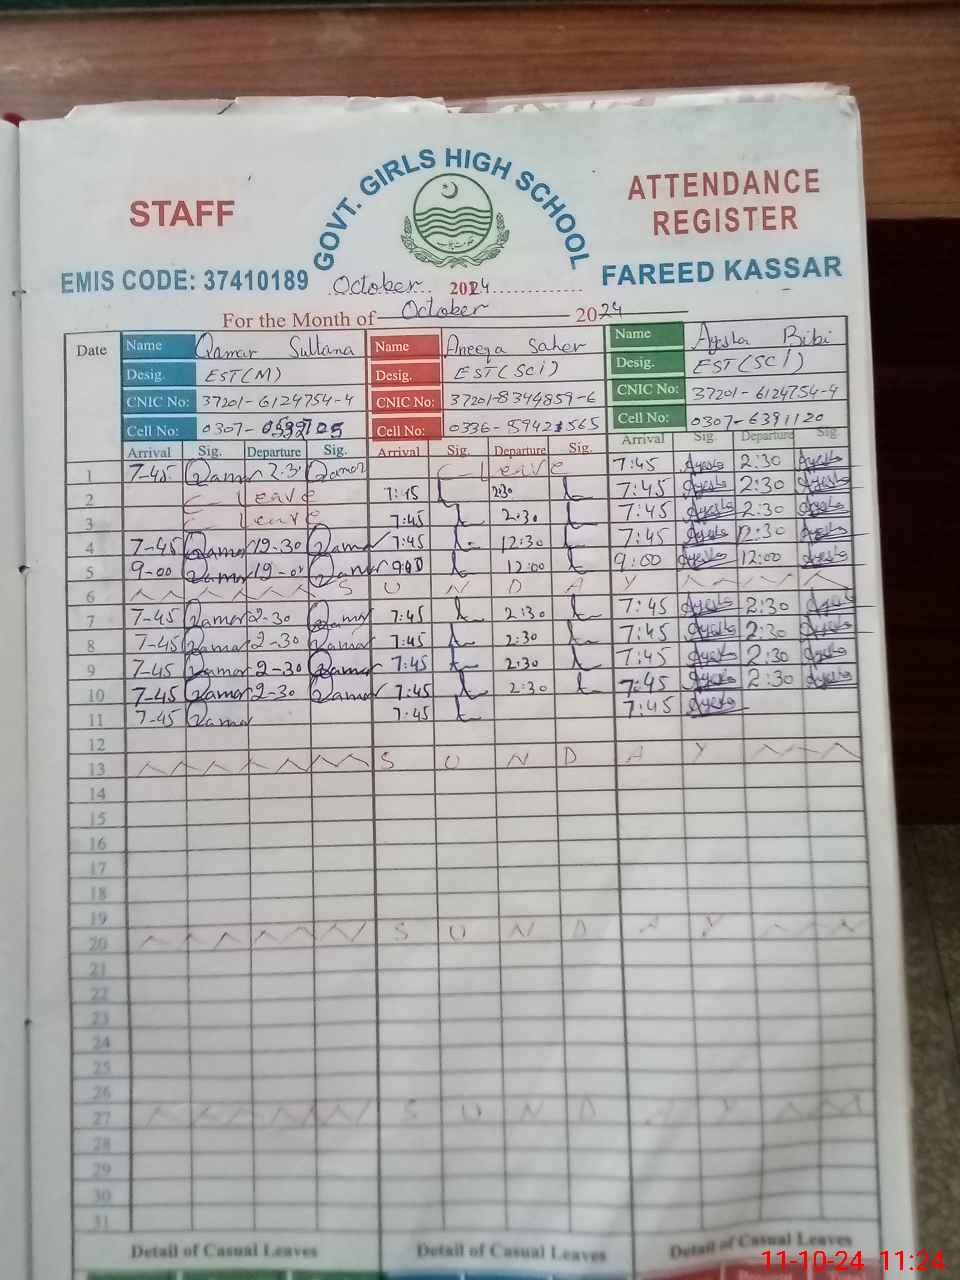 GOVT. GIRLS HIGH SCHOOL
STAFF
ATTENDANCE
REGISTER
EMIS CODE: 37410189
October 2024
FAREED KASSAR
For the Month of October 2024
Date
Name Qamar Sultana Name Aneeqa Saher Name Ayesha Bibi
Desig. EST(M) Desig. EST(SCI) Desig. EST(SCI)
CNIC No: 37201-6124754-4 CNIC No: 37201-8344859-6 CNIC No: 37201-6124754-4
Cell No: 0307- Cell No: 0336- Cell No: 0307-6391120
Arrival Sig. Departure Sig. Arrival Sig. Departure Sig. Arrival Sig. Departure Sig.
1 7-45 Qamar 2-3 Qamar C-Leave 7:45 Ayesha 2:30 Ayesha
2 C-Leave 7:45 2:30 7:45 Ayesha 2:30 Ayesha
3 C-Leave 7:45 2:30 7:45 Ayesha 2:30 Ayesha
4 7-45 Qamar 12-30 Qamar 7:45 12:30 7:45 Ayesha 12:30 Ayesha
5 9-00 Qamar 12-0 Qamar 9:00 12:00 9:00 Ayesha 12:00 Ayesha
6 S U N D A Y
7 7-45 Qamar 2-30 Qamar 7:45 2:30 7:45 Ayesha 2:30 Ayesha
8 7-45 Qamar 2-30 Qamar 7:45 2:30 7:45 Ayesha 2:30 Ayesha
9 7-45 Qamar 2-30 Qamar 7:45 2:30 7:45 Ayesha 2:30 Ayesha
10 7-45 Qamar 2-30 Qamar 7:45 2:30 7:45 Ayesha 2:30 Ayesha
11 7-45 Qamar 7:45 7:45 Ayesha
12
13 S U N D A Y
14
15
16
17
18
19
20 S U N D A Y
21
22
23
24
25
26
27 S U N D A Y
28
29
30
31
Detail of Casual Leaves Detail of Casual Leaves Detail of Casual Leaves
11-10-24 11:24